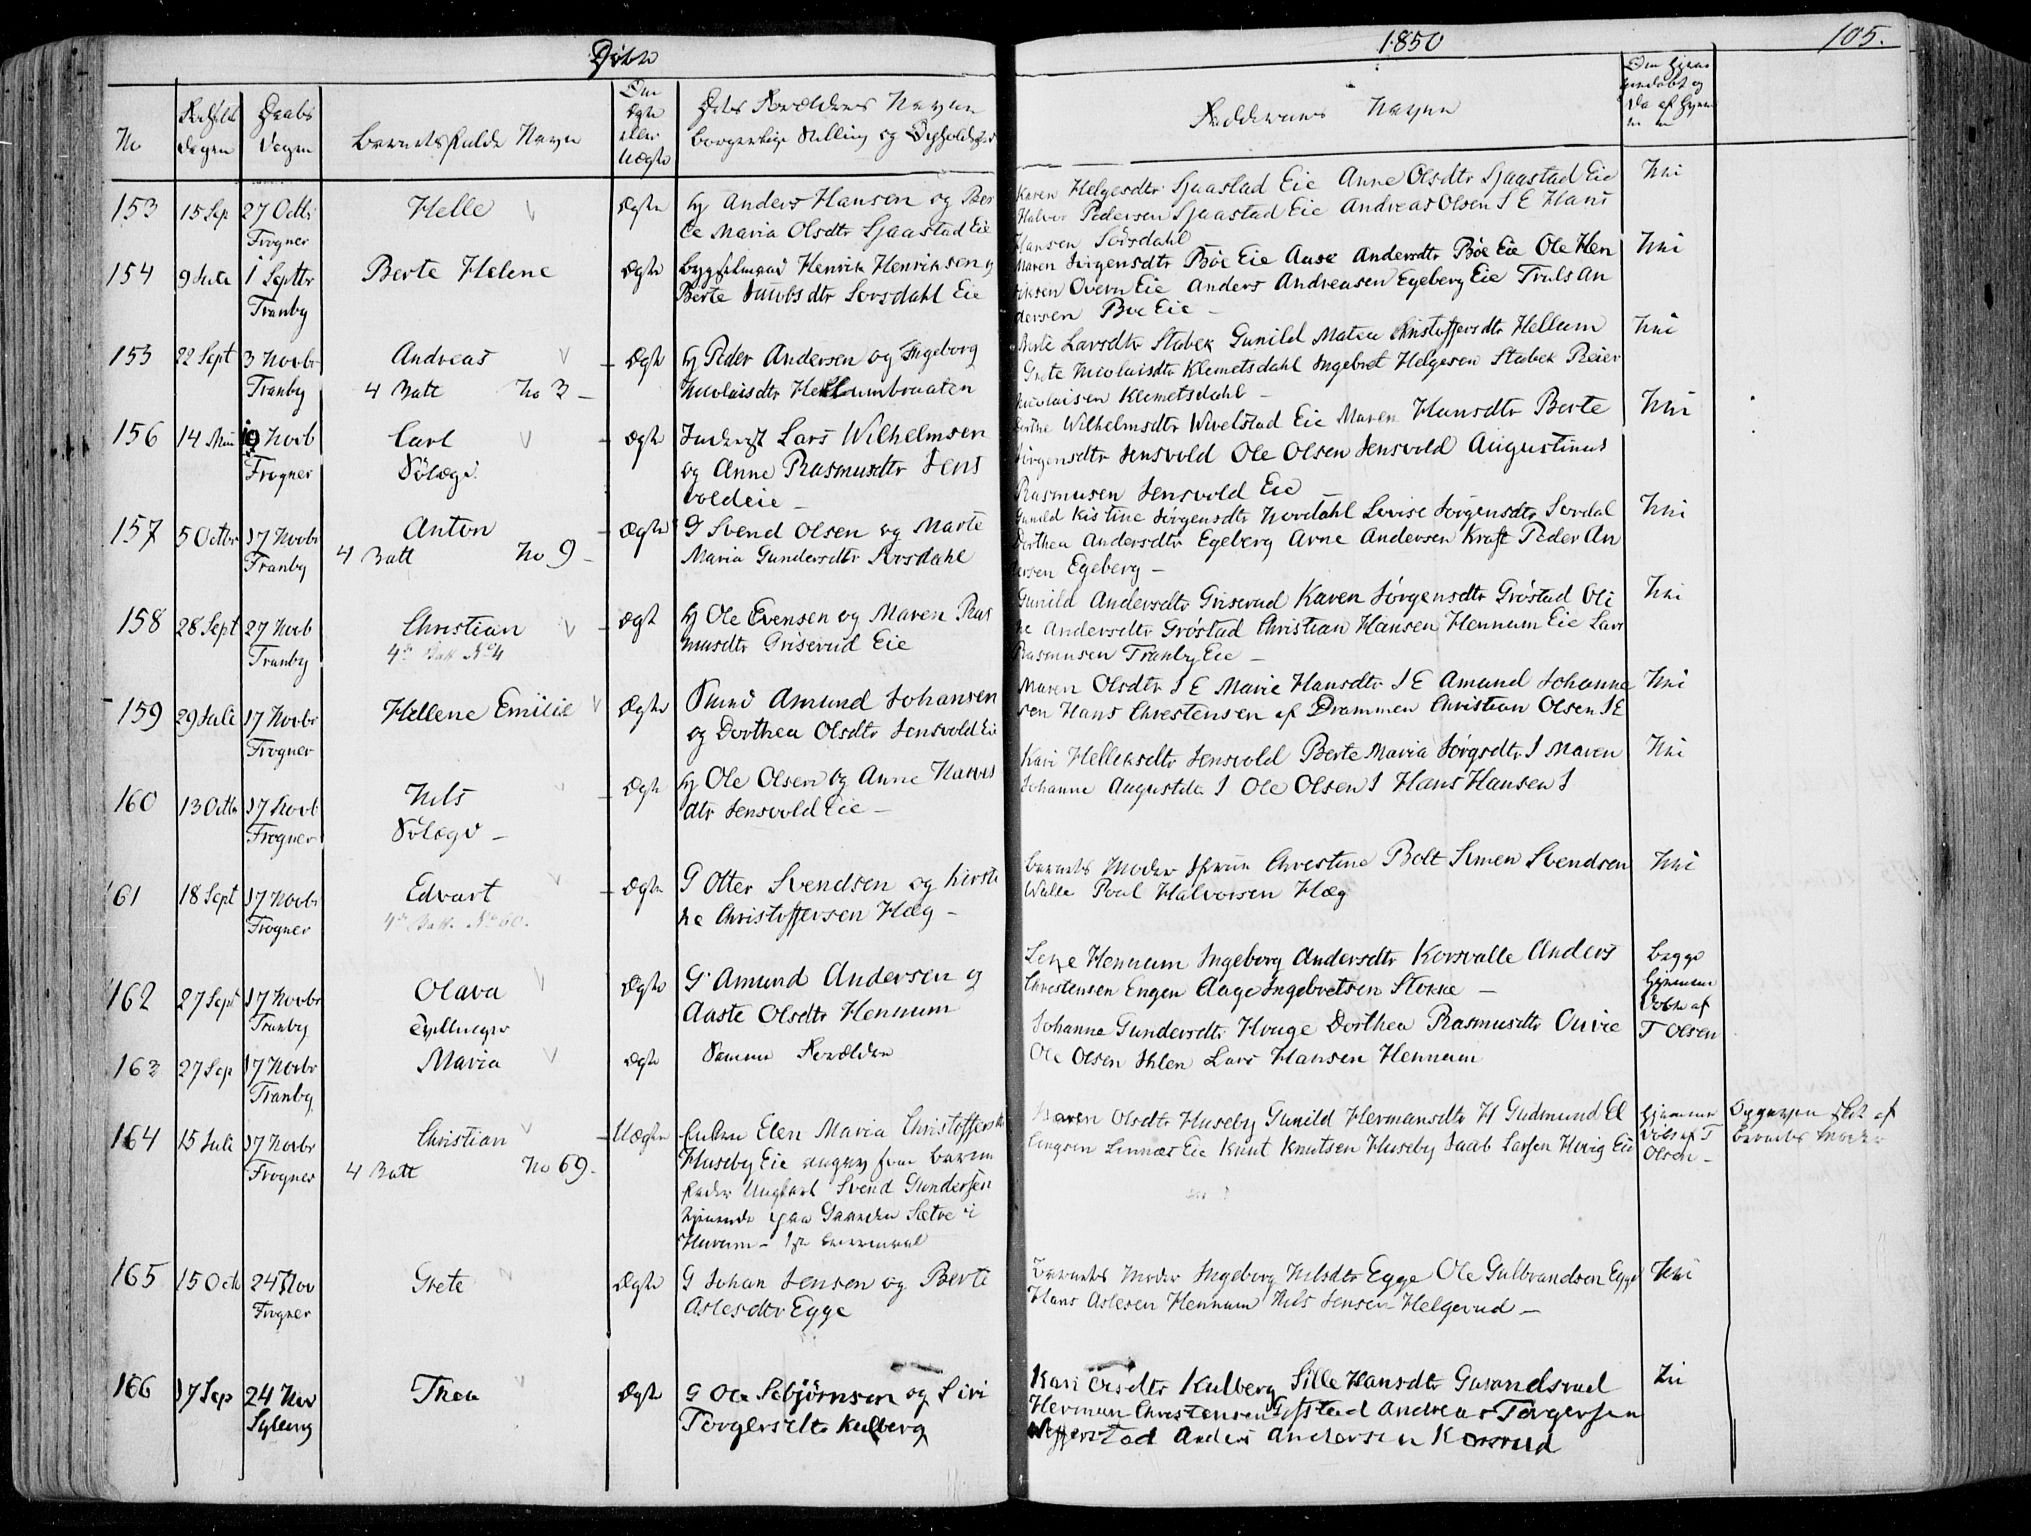 Døbte
1850
105.
No
Fødsels Dagen
Daabs Dagen
Barnets fulde Navn
Om Ægte eller Uægte
Dets Forældres Navne
borgerlige Stilling og Opholdsted
Faddernes Navne
153 15 Sep 27 Octbr Frogner
Helle
Ægte
Hj Anders Hansen og Ber
te Maria Olsdtr Sjaastad Eie
Karen Helgesdtr Sjaastad Eie Anne Olsdtr Sjaastad Eie
Halvor Pedersen Sjaastad Eie Andreas Olsen S E Hans
Hansen Sørsdahl
Nei
154 9 Juli 1 Septbr Tranby
Berte Helene
Ægte
Bygselmand Henrik Henriksen og
Berte Jacobsdtr Sørsdahl Eie
Maren Jørgensdtr Bøe Eie Aase Andersdtr Bøe Eie Ole Hen
riksen Overn Eie Anders Andreasen Egeberg Eie Truls An
dersen Bøe Eie -
Nei
155 22 Sept 3 Novbr Tranby
Andreas
4 Batt No 3 -
Ægte
Hj Peder Andersen og Ingeborg
Nicolaisdtr Hellumbraaten
Berte Larsdtr Stabek Gunild Matea Christoffersdtr Hellum
Grete Nicolaisdtr Klemetsdahl Ingebret Helgesen Stabek Reier
Nicolaisen Klemetsdahl -
Nei
156 14 Mai 10 Novb Frogner
Carl
Sølægd
Ægte
Inderst Lars Wilhelmsen
og Anne Rasmusdtr Jens
voldeie -
Dorthe Wilhelmsdtr Wivelstad Eie Maren Hansdtr Berte
Jørgensdtr Jensvold Ole Olsen Jensvold Augustinus
Rasmusen Jensvold Eie
Nei
157 5 Octbr 17 Novbr Tranby
Anton
4 Batt No 9 -
Ægte
G Svend Olsen og Marte
Maria Gundersdtr Sørsdahl
Gunild Kistine Jørgensdtr Nordahl Lovise Jørgensdtr Sørdal
Dorthea Andersdtr Egeberg Arne Andersen Kraft Peder An
dersen Egeberg -
Nei
158 28 Sept 27 Novb Tranby
Christian
4de Batt No 4
Ægte
Hj Ole Evensen og Maren Ras
musdtr Griserud Eie
Gunild Andersdtr Griserud Karen Jørgensdtr Grøstad Oli
ne Andersdtr Grøstad Christian Hansen Hennum Eie Lars
Rasmusen Tranby Eie -
Nei
159 29 Juli 17 Novbr Frogner
Hellene Emilie
Ægte
Smed Amund Johansen
og Dorthea Olsdtr Jensvold Eie
Maren Olsdtr J E Marie Hansdtr J E Amund Johanne
sen Hans Christensen af Drammen Christian Olsen J E
Nei
160 13 Octbr 17 Novb Frogner
Nils
Sølægd -
Ægte
Hj Ole Olsen og Anne Hans
dtr Jensvold Eie -
Kari Helleksdtr Jensvold Berte Maria Jørgsdtr J Maren
Johanne Augustdtr J Ole Olsen J Hans Hansen J
Nei
161 18 Sept 17 Novbr Frogner
Edvart
4de Batt. No 60.
Ægte
G Otter Svendsen og Kirsti
ne Christoffersen Hæg -
Barnets Moder Christine Bolt Simen Svendsen
Walle Poul Halvorsen Hæg
Nei
162 27 Sept 17 Novbr Tranby
Olava
Tvillinger
Ægte
G. Amund Andersen og
Aaste Olsdtr Hennum
Lene Hennum Ingeborg Andersdtr Korsvalle Anders
Christensen Engen Aage Ingebretsen Stokke -
Begge
hjemme
døbte af
T Olsen
163 27 Sep 17 Novbr Tranby
Maria
Ægte
Samme Forældre
Johanne Gundersdtr Houge Dorthea Rasmusdtr Ouvie
Ole Olsen Ihlen Lars Hansen Hennum
164 15 Juli 17 Novbr Frogner
Christian
4 Batt No 69 -
Uægte
Pigen Elen Maria Christoffersdtr
Huseby Eie angiven som Barne
fader Ungkarl Svend Gundersen
tjenende paa Gaarden Sætre i
Hurum -
Maren Olsdtr Huseby Gunild Hermansdtr H Gudmund El
lingsen Linnæs Eie Knut Knutsen Huseby Jacob Larsen Høvig Eie
hjemme
døbt af T
Olsen -
Opgaven skee af
barnets Moder
165 15 Oct 24 Nov Frogner
Grete
Ægte
G Johan Jensen og Berte
Aslesdtr Egge
Barnets Moder Ingeborg Nilsdtr Egge Ole Gulbrandsen Egge
Hans Aslesen Hennum Nils Jensen Helgerud -
Nei
166 17 Sep 24 Nov Sylling
Thea
Ægte
G Ole Sebjørnsen og Siri
Torgersdtr Kulberg
Kari Olsdtr Kulberg Sille Hansdtr Gurandsrud
Herman Christensen Gifstad Andreas Torgersen
Anders Andersen Korsrud
Nei